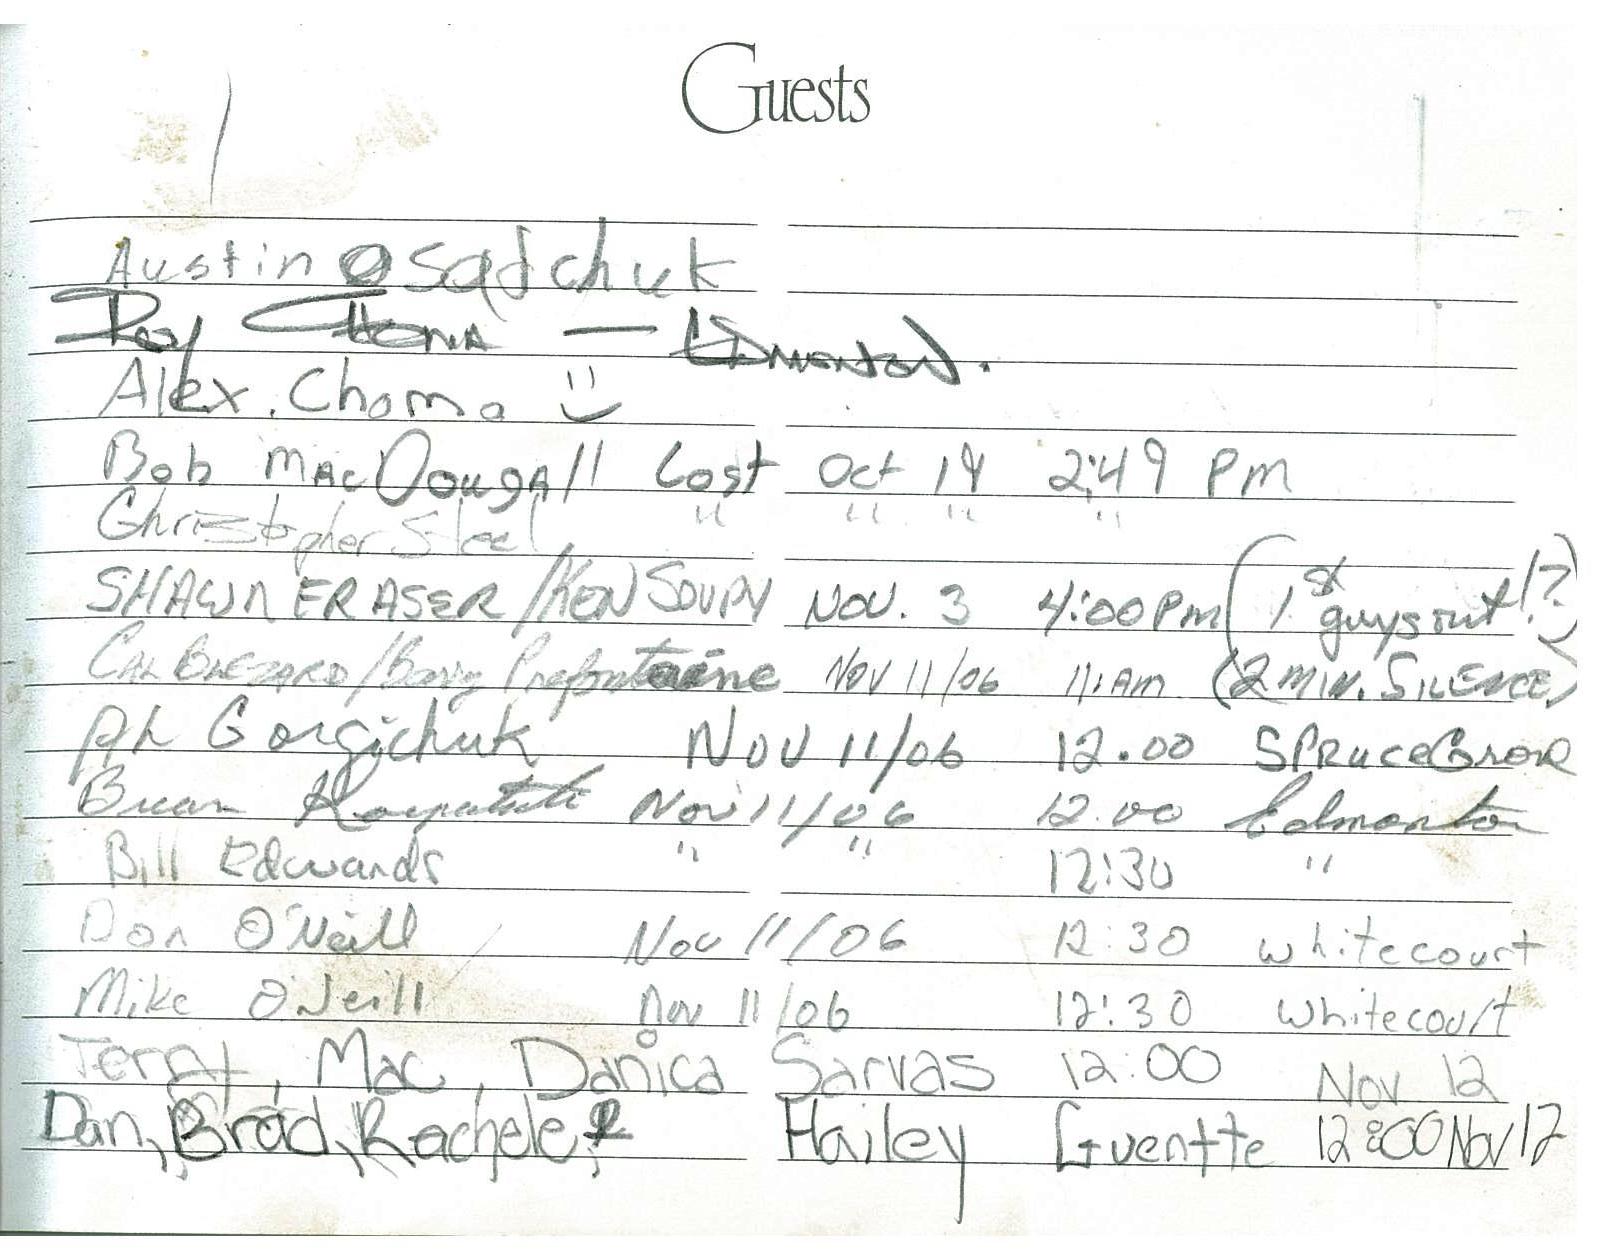 Guests
Austin Osadchuk
Roy Choma — Edmonton.
Alex. Choma
Bob MacDougall Lost Oct 14 2:49 Pm
Christopher Steel " " " "
SHAWN FRASER / KEN Nov. 3 4:00 Pm (1st guys out!?)
CAL BLEZARD / Barry Prefontaine Nov 11/06 11:AM (2 MIN. SILENCE)
Gorgichuk Nov 11/06 12.00 SPRuce Grove
Brian Nov 11/06 12.00 Edmonton
Bill Edwards " " 12:30 "
Don O'Neill Nov 11/06 12:30 whitecourt
Mike O'Neill Nov 11/06 12:30 whitecourt
Terry, Mac, Danica Sarvas 12:00 Nov 12
Dan, Brad, Rachele, & Hailey Guentte 12:00 Nov 12